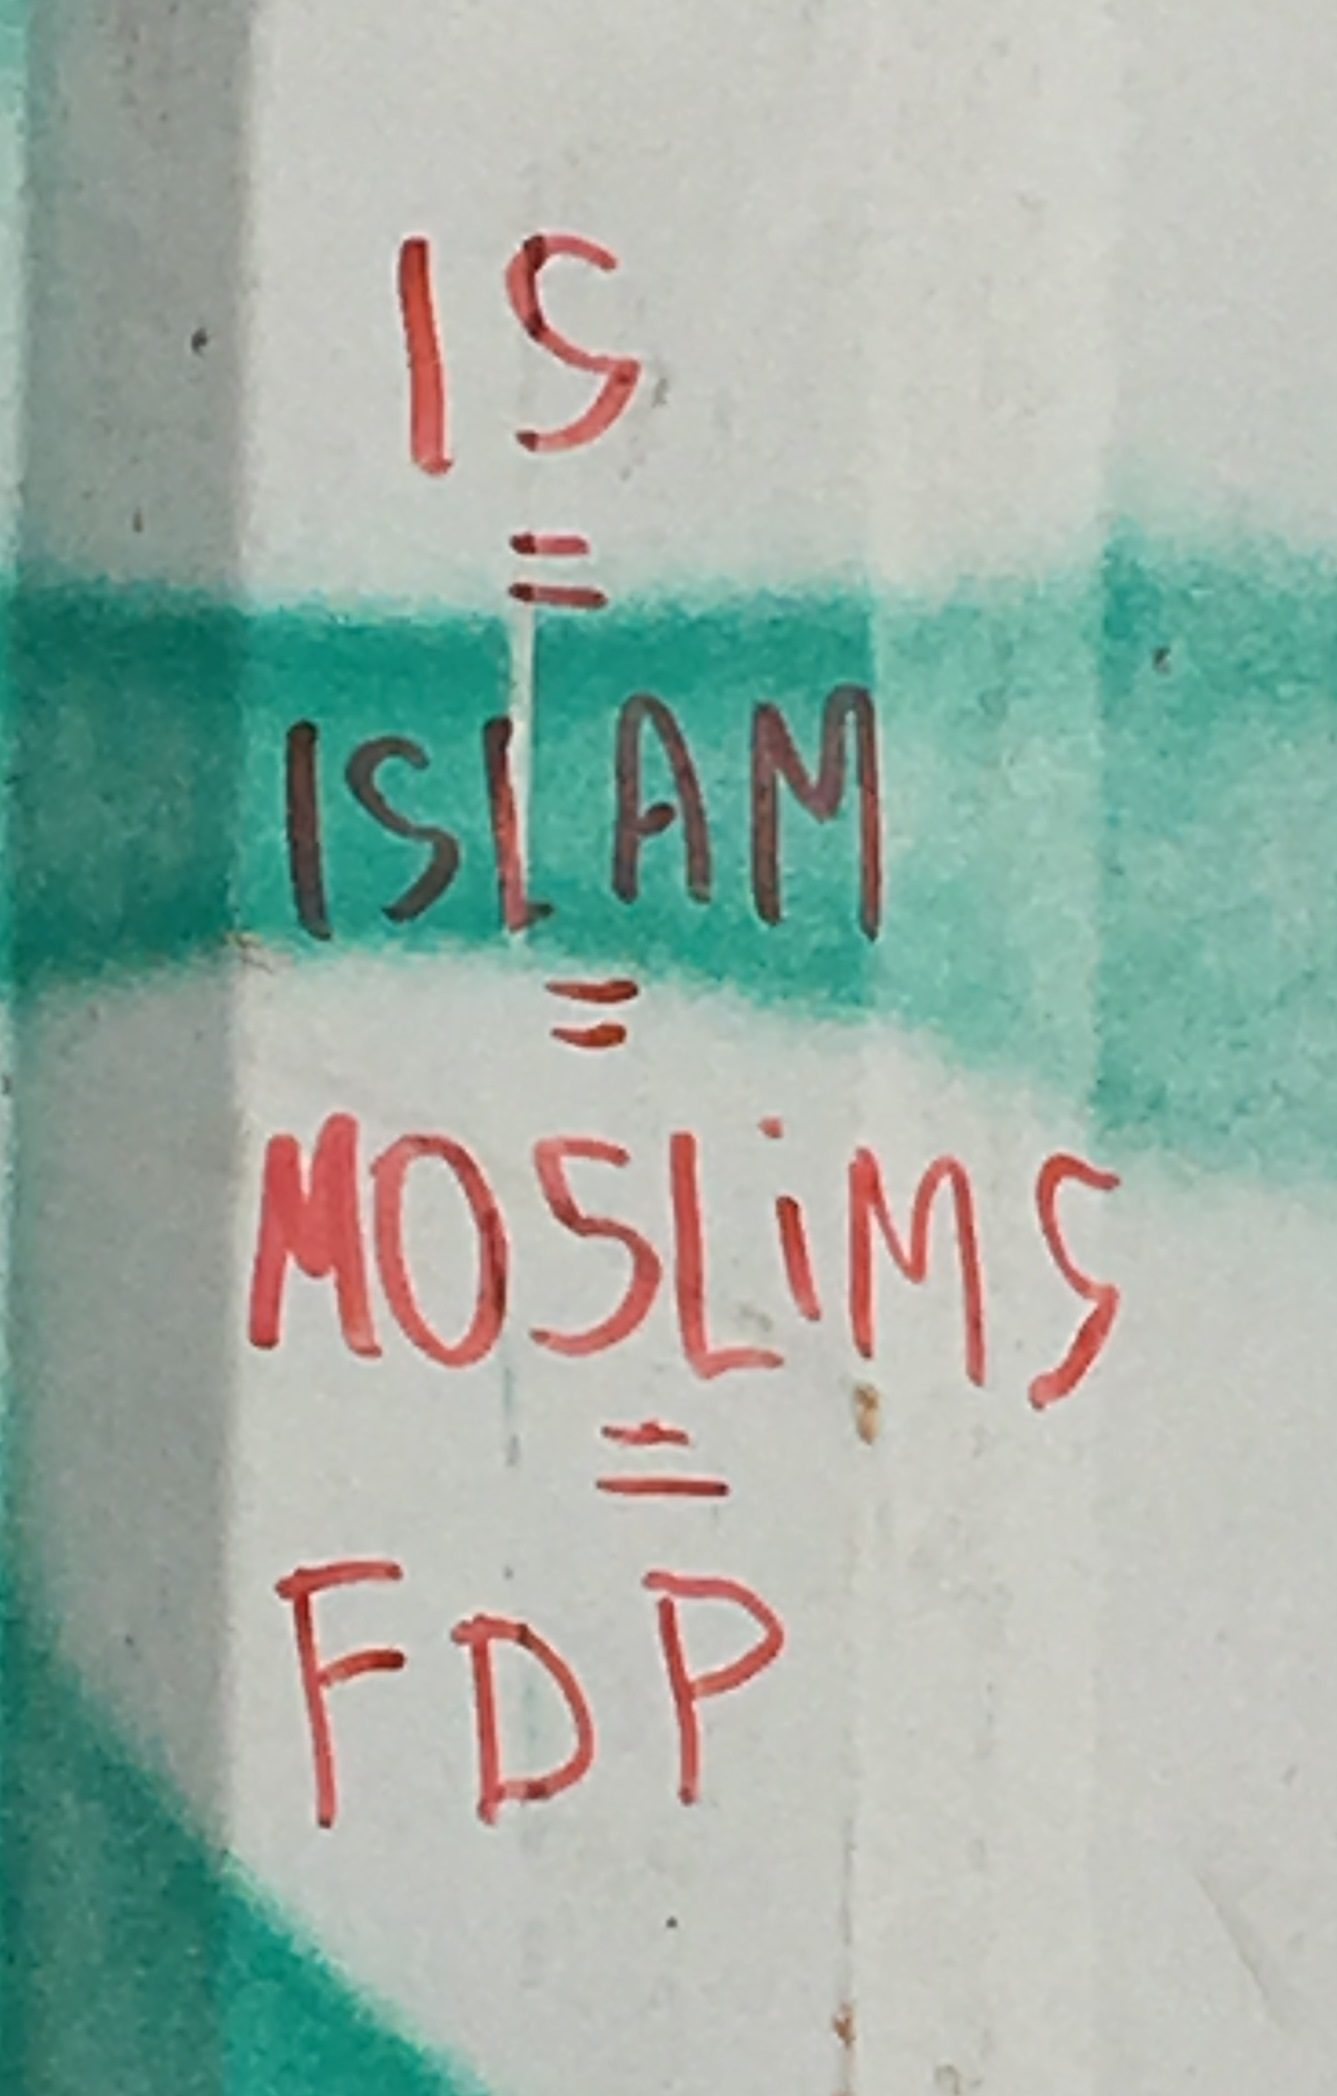 IS
=
ISLAM
=
MOSLiMS
=
FDP